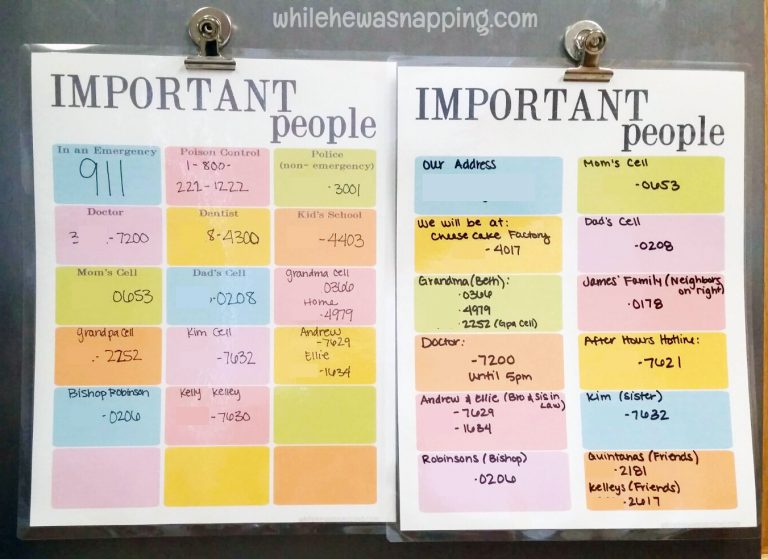 whilehewasnapping.com
IMPORTANT
people
In an Emergency
911
Poison Control
1-800-
222-1222
Police
(non-emergency)
·3001
Doctor
3 .-7200
Dentist
8-4300
Kid's School
-4403
Mom's Cell
0653
Dad's Cell
-0208
grandma cell
0366
Home
·4979
grandpa cell
.- 2252
Kim Cell
-7632
Andrew
-7629
Ellie
-1634
Bishop Robinson
-0206
Kelly Kelley
-7630
IMPORTANT
people
Our Address
Mom's Cell
-0653
We will be at:
Cheese Cake Factory
-4017
Dad's Cell
-0208
Grandma (Beth):
·0366
·4979
·2252 (Gpa Cell)
James' Family (Neighbors
on right)
·0178
Doctor:
-7200
until 5pm
After Hours Hotline:
-7621
Andrew & Ellie (Bro & Sis in
Law)
-7629
-1634
Kim (Sister)
-7632
Robinsons (Bishop)
·0206
Quintanas (Friends)
·2181
Kelleys (Friends)
·2617